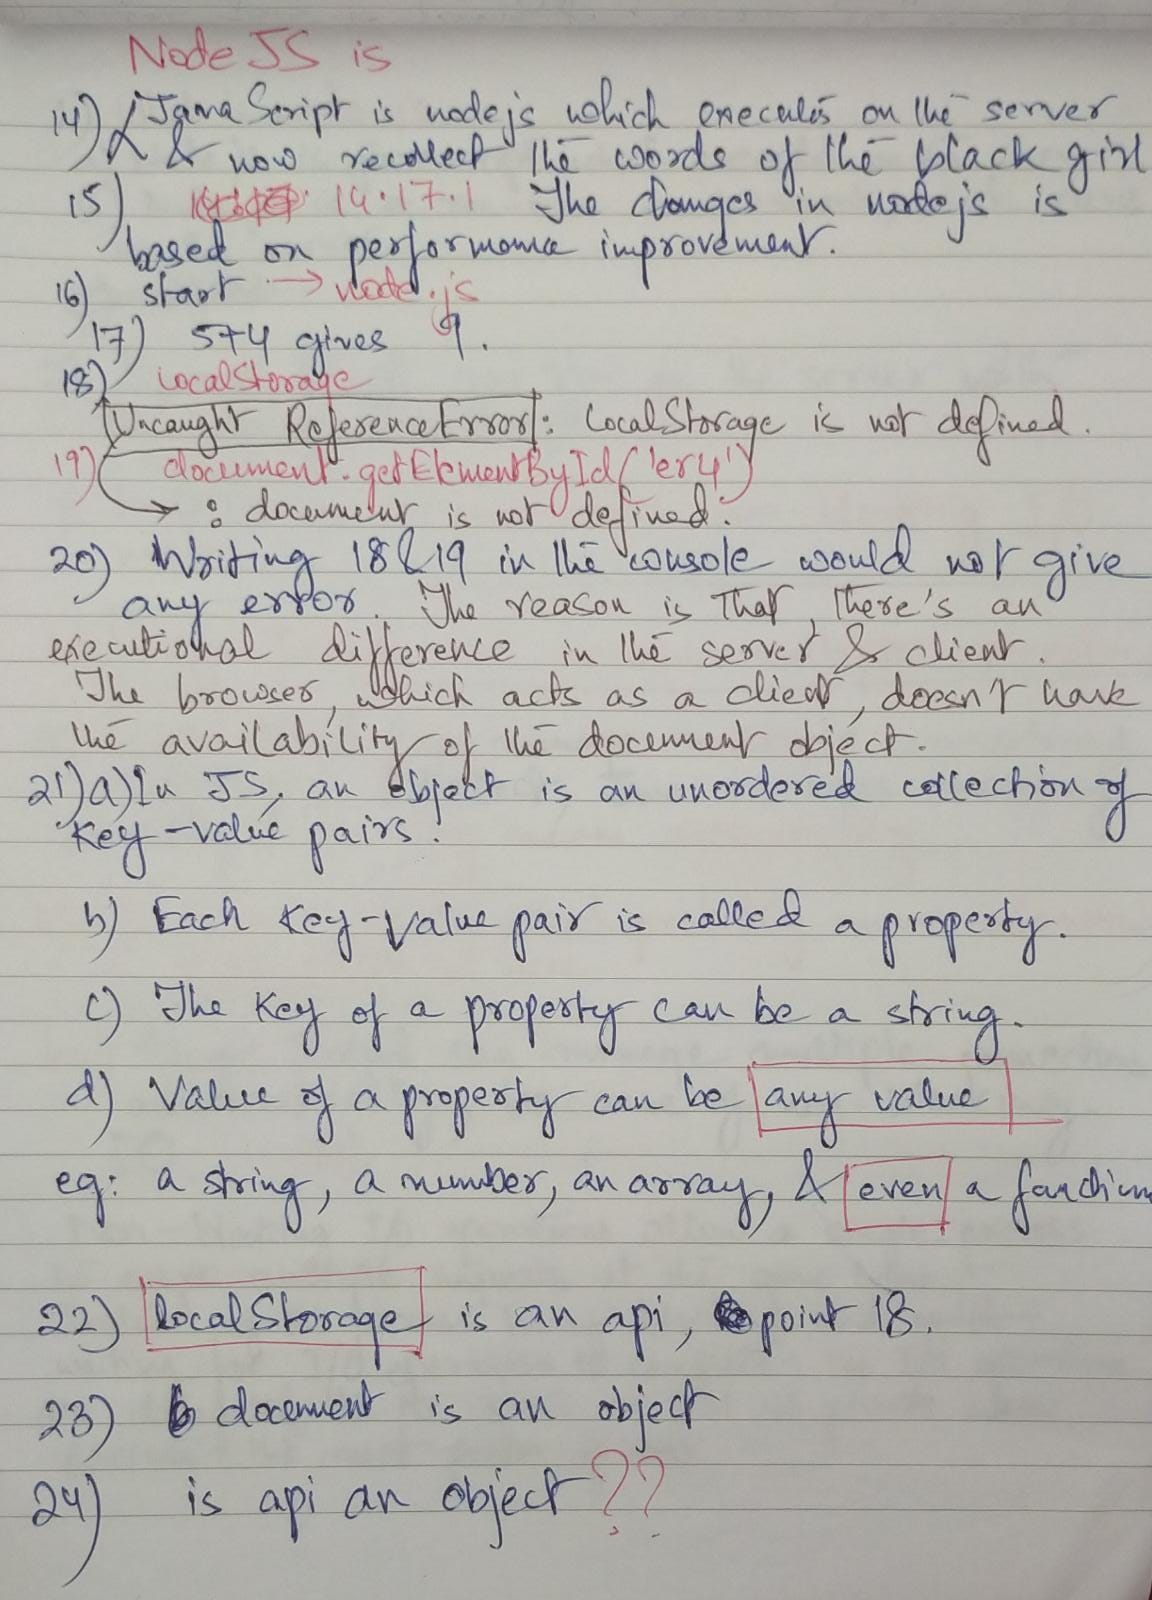 Node JS is
14) JavaScript is nodejs which executes on the server
& now recollect the words of the black girl
15) 14.17.1 The changes in nodejs is
based on performance improvement.
16) start → node.js
17) 5+4 gives 9.
18) localStorage
Uncaught ReferenceError: localStorage is not defined.
19) document.getElementById('er4')
: document is not defined.
20) Writing 18 & 19 in the console would not give
any error. The reason is that, there's an
executional difference in the server & client.
The browser, which acts as a client, doesn't have
the availability of the document object.
21) a) In JS, an object is an unordered collection of
key-value pairs.
b) Each key-value pair is called a property.
c) The key of a property can be a string.
d) Value of a property can be any value
eg: a string, a number, an array, & even a function
22) localStorage is an api, point 18.
23) document is an object
24) is api an object ??